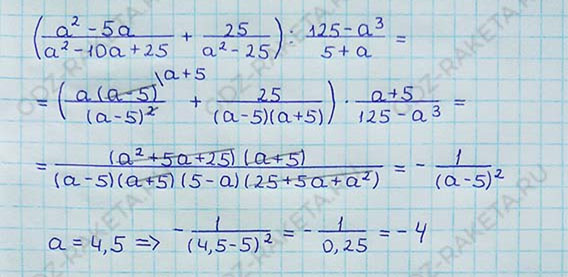 (a² - 5a / a² - 10a + 25 + 25 / a² - 25) : 125 - a³ / 5 + a =
= (a(a-5) / (a-5)² \a+5 + 25 / (a-5)(a+5)) · a+5 / 125 - a³ =
= (a² + 5a + 25)(a+5) / (a-5)(a+5)(5-a)(25+5a+a²) = - 1 / (a-5)²
a = 4,5 => - 1 / (4,5-5)² = - 1 / 0,25 = -4
ODZ-RAKETA.RU